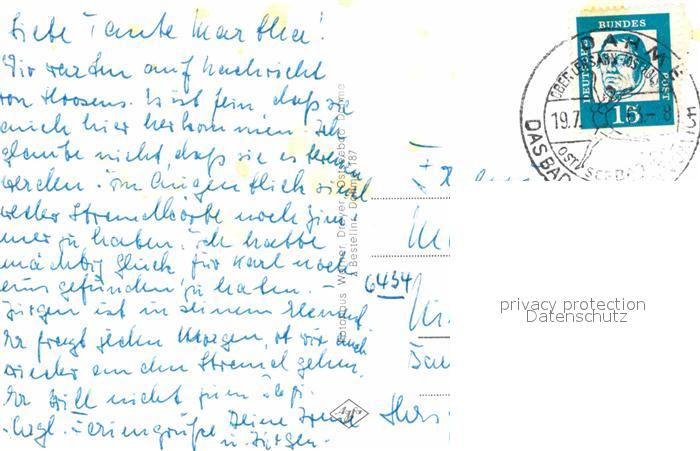 Liebe Tante Martha!
Wir warten auf Nachricht
von Hoosens. Es ist fein, daß sie
auch hier herkommen. Ich
glaube nicht, daß sie es bereuen
werden. Im Augenblick sind
weder Strandkörbe noch Zim-
mer zu haben. Ich hatte
mächtig Glück, für Karl noch
eins gefunden zu haben. –
Jürgen ist in seinem Element.
Er fragt jeden Morgen, ob wir auch
wieder an den Strand gehen.
Er will nicht zum
Feriengrüße Deine
u. Jürgen.
Werner Dreyer, Ostseebad Dahme
Bestellnr. Dahme 187
Agfa
6434
DEUTSCHE
BUNDES
POST
15
DAHME
19.7.
OSTSEEBAD
DAS BAD
privacy protection
Datenschutz